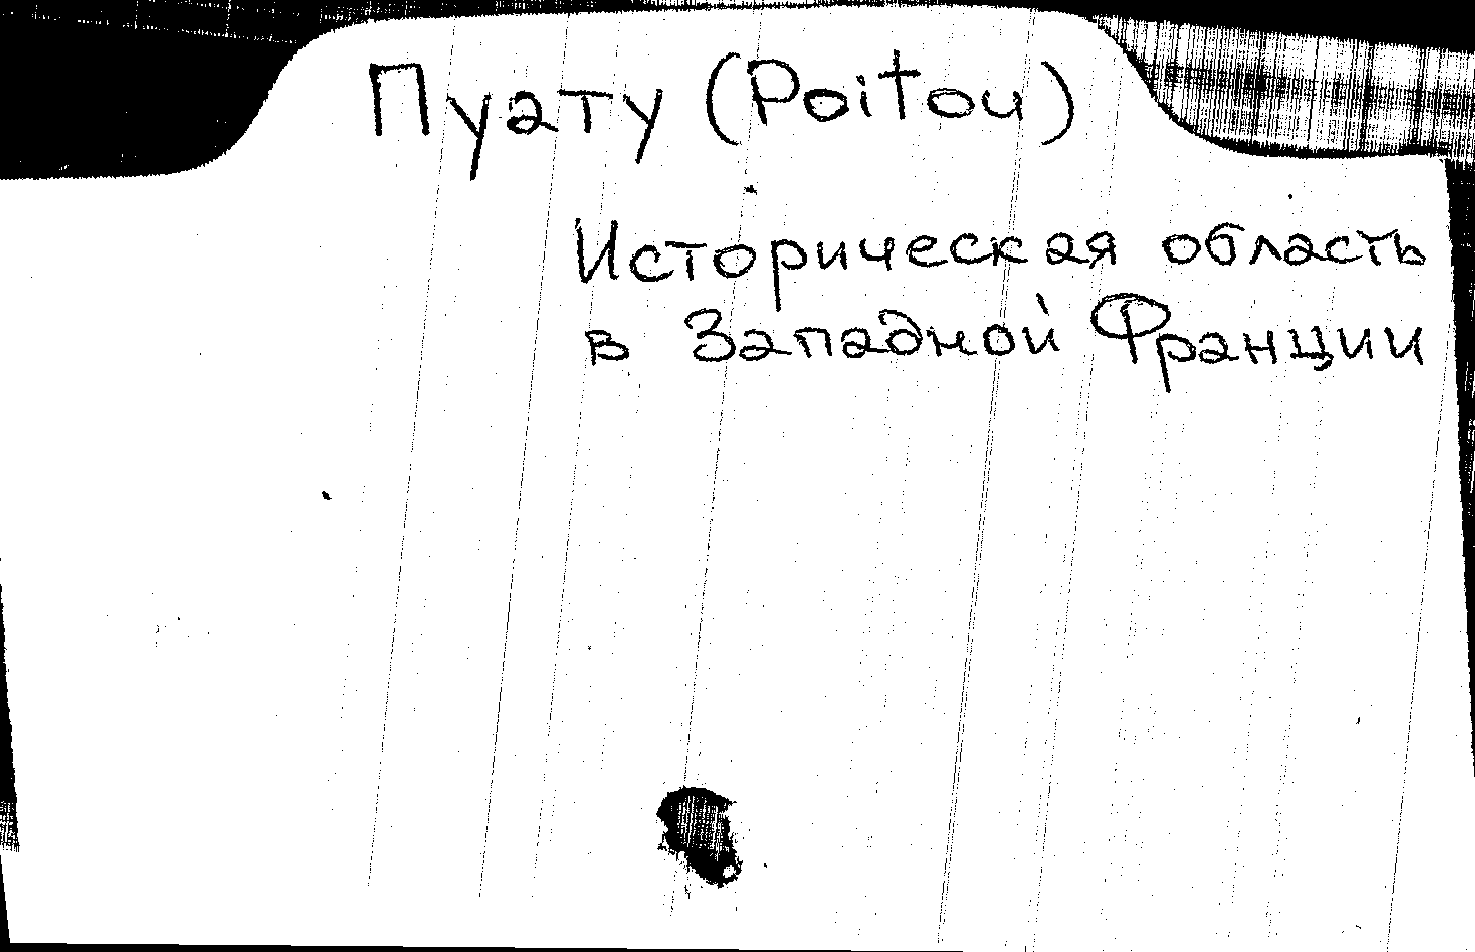 Пуату (Poitou)
Историческая область
в Западной Франции